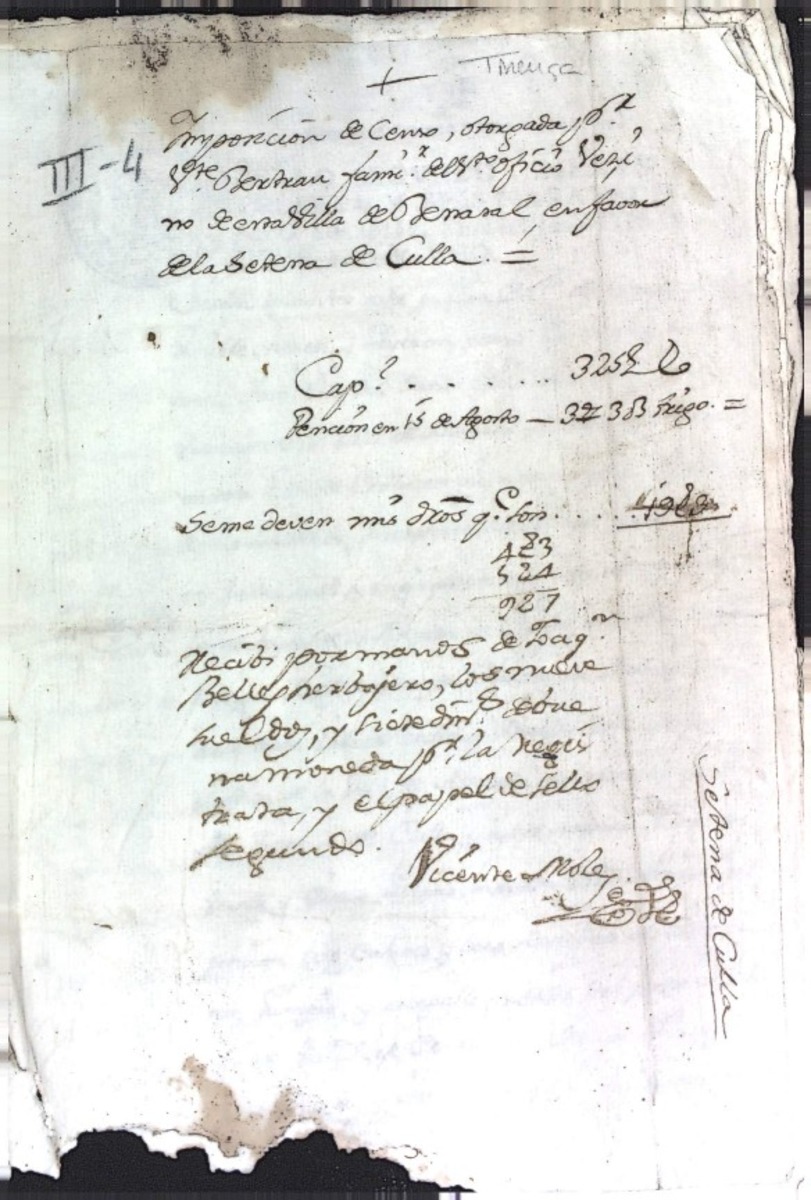 +
III-4
Imposicion de Censo, otorgada p.r
V.te Bertran fami.r del S.to oficio Vezi
no de esta Villa de Benasal, en favor
de la Setena de Culla. =
Cap.l . . . . . . . 325 L
Pencion en 15 de Agosto — trigo. =
Se me deven mis dros q.e son . . . .
4 3
5 4
9 7
Recibi por manos de
herbajero, los nueve
sueldos, y siete din.s de bue
na moneda p.r la Regis
trata, y el papel de sello
segundo.
Vicente Moles
Setena de Culla